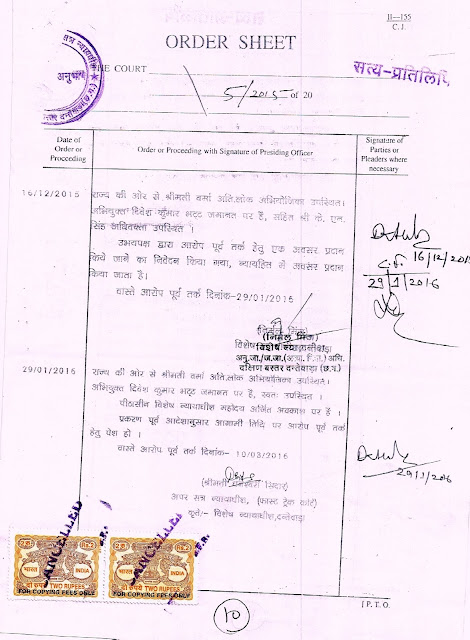 II—155
C. J.
ORDER SHEET
सत्र न्यायाधीश
अनुभाग
THE COURT
सत्य-प्रतिलिपि
5/2015 of 20
Date of Order or Proceeding
Order or Proceeding with Signature of Presiding Officer
Signature of Parties or Pleaders where necessary
16/12/2015
राज्य की ओर से श्रीमती वर्मा अति.लोक अभियोजिका उपस्थित।
अभियुक्त दिवेश कुमार भट्ट जमानत पर है, सहित श्री के. एल.
सिंह अधिवक्ता उपस्थित ।
उभयपक्ष द्वारा आरोप पूर्व तर्क हेतु एक अवसर प्रदान
किये जाने का निवेदन किया गया, न्यायहित में अवसर प्रदान
किया जाता है।
वास्ते आरोप पूर्व तर्क दिनांक-29/01/2016
16/12/2015
29/1/2016
विशेष न्यायाधीश
दक्षिण बस्तर दन्तेवाड़ा (छ.ग.)
29/01/2016
राज्य की ओर से श्रीमती वर्मा अति.लोक अभियोजिका उपस्थित।
अभियुक्त दिवेश कुमार भट्ट जमानत पर है, स्वतः उपस्थित ।
पीठासीन विशेष न्यायाधीश महोदय अर्जित अवकाश पर है ।
प्रकरण पूर्व आदेशानुसार आगामी तिथि पर आरोप पूर्व तर्क
हेतु पेश हो ।
वास्ते आरोप पूर्व तर्क दिनांक- 10/03/2016
29/1/2016
अपर सत्र न्यायाधीश, (फास्ट ट्रेक कोर्ट)
कृते- विशेष न्यायाधीश,दन्तेवाड़ा
CANCELLED
CANCELLED
भारत INDIA
दो रुपये TWO RUPEES
FOR COPYING FEES ONLY
भारत INDIA
दो रुपये TWO RUPEES
FOR COPYING FEES ONLY
10
[ P. T. O.